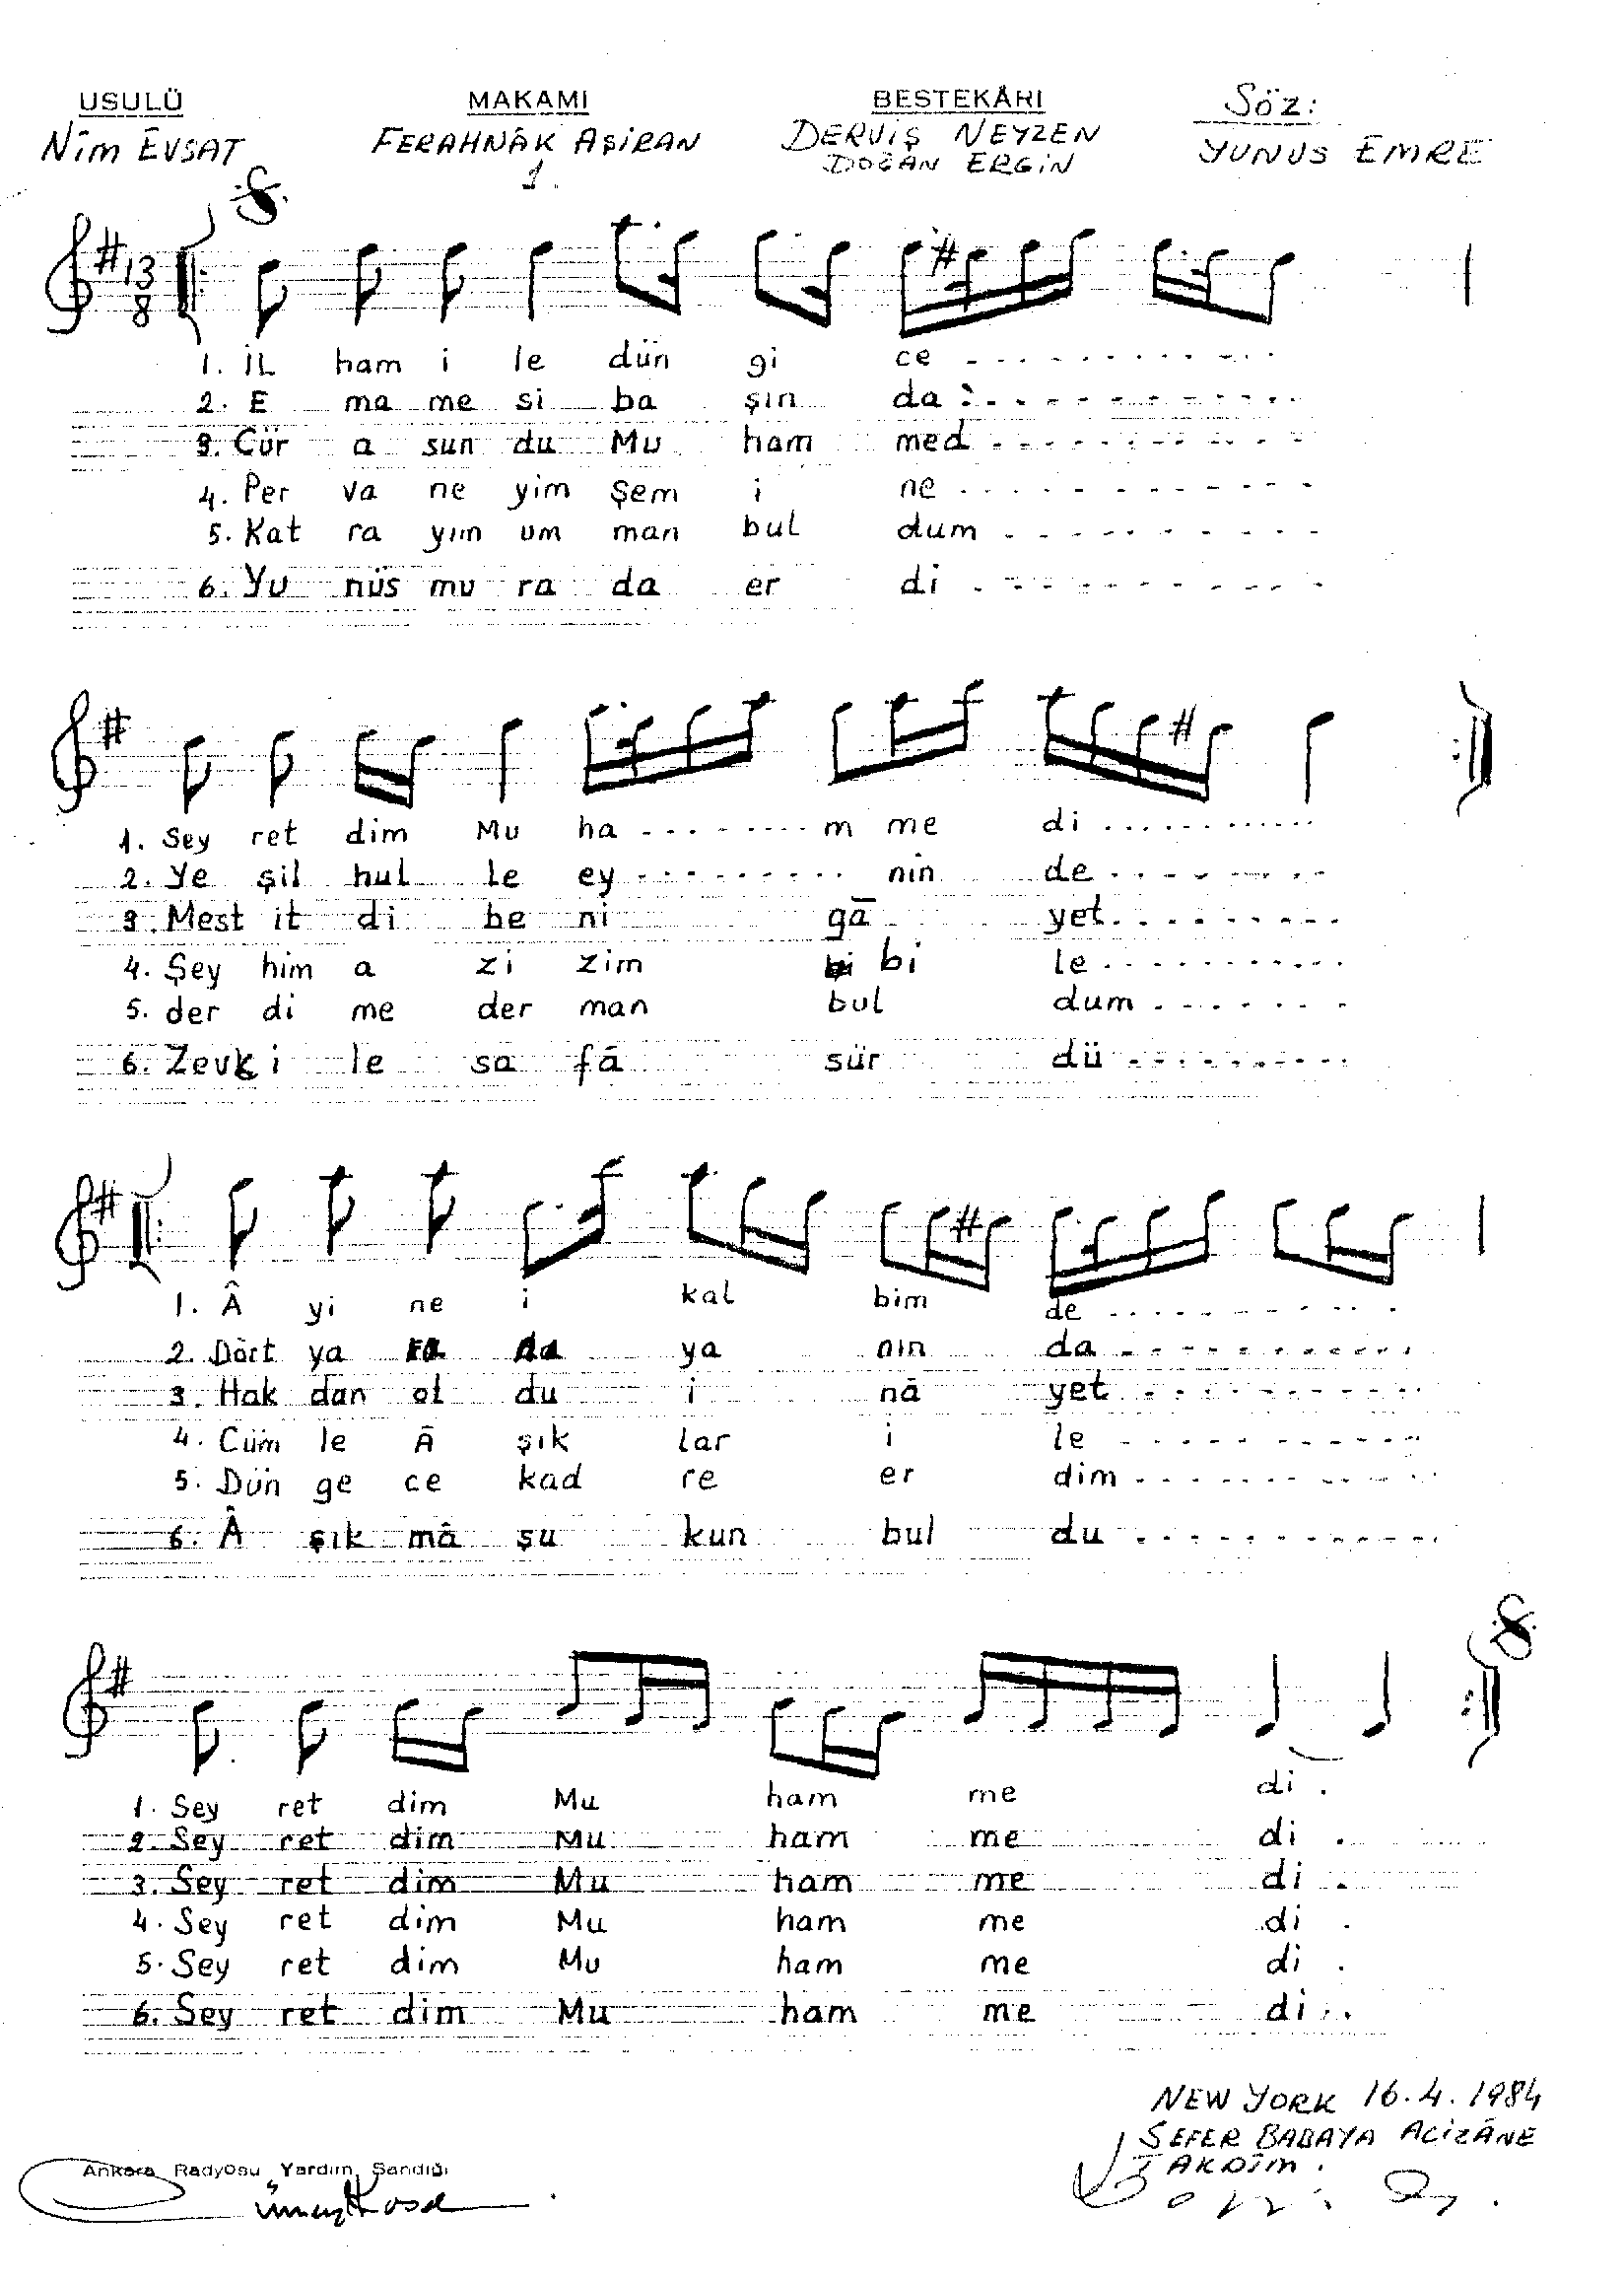 USULÜ MAKAMI BESTEKÂRI Söz:
Nîm EVSAT FERAHNÂK AŞİRAN DERVİŞ NEYZEN YUNUS EMRE
1. DOĞAN ERGİN
13
8
1. İL ham i le dün gi ce - - - - - - - - - -
2. E ma me si ba şın da : - - - - - - - - - -
3. Cür a sun du Mu ham med - - - - - - - - - -
4. Per va ne yim Şem i ne - - - - - - - - - -
5. Kat ra yım um man bul dum - - - - - - - - - -
6. Yu nüs mu ra da er di - - - - - - - - - -
1. Sey ret dim Mu ha - - - - - - - - m me di . . . . . . . . . . . .
2. Ye şil hul le ey - - - - - - - - nin de - - - - - - - -
3. Mest it di be ni gā yet. - - - - - - - -
4. Şey him a zi zim bi le - - - - - - - - - -
5. der di me der man bul dum - - - - - - -
6. Zevk i le sa fā sür dü - - - - - - - - -
1. Â yi ne i kal bim de - - - - - - - - - -
2. Dört ya ya nın da - - - - - - - - - -
3. Hak dan ol du i nā yet - - - - - - - - - -
4. Cüm le Ā şık lar i le - - - - - - - - - -
5. Dün ge ce kad re er dim - - - - - - - - - -
6. Â şık mâ şu kun bul du - - - - - - - - - -
1. Sey ret dim Mu ham me di .
2. Sey ret dim Mu ham me di .
3. Sey ret dim Mu ham me di .
4. Sey ret dim Mu ham me di .
5. Sey ret dim Mu ham me di .
6. Sey ret dim Mu ham me di . .
NEW YORK 16.4.1984
SEFER BABAYA ACİZÂNE
TAKDÎM.
Ankara Radyosu Yardım Sandığı